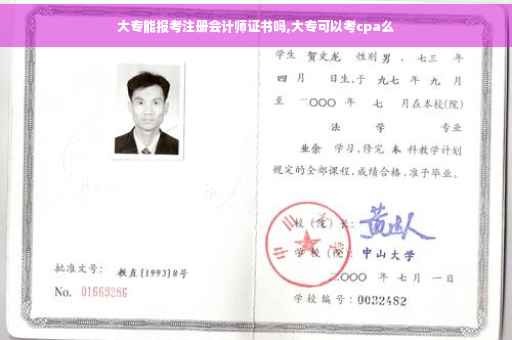 大专能报考注册会计师证书吗,大专可以考cpa么
学生 贺文龙 性别 男 、七三 年
四 月 日生,于 九七 年 九 月
至 二〇〇〇 年 七 月在本校(院)
法 学 专业
业余 学习,修完 本 科教学计划
规定的全部课程,成绩合格,准予毕业。
校(院)长:
学校(院): 中山大学
二〇〇〇 年 七 月 一 日
批准文号: 教直[1993]8号
No. 01669286
学校编号: 0032482